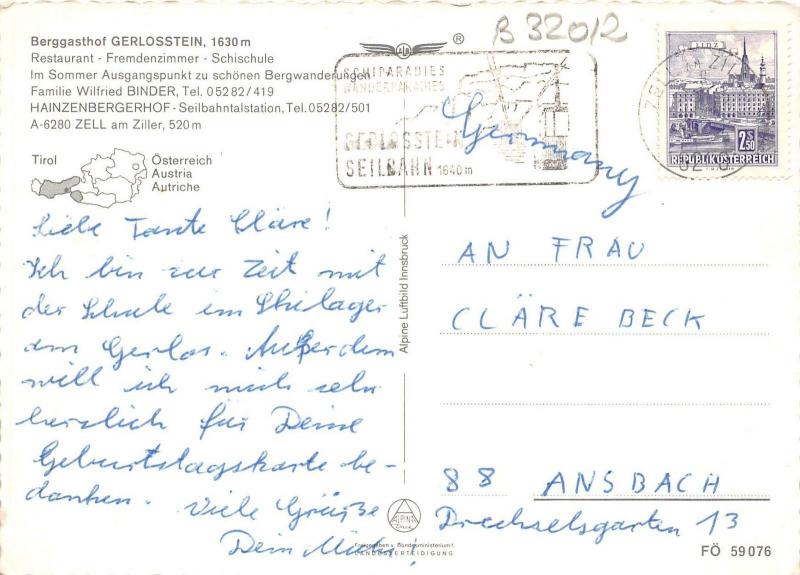 Berggasthof GERLOSSTEIN, 1630 m
Restaurant - Fremdenzimmer - Schischule
Im Sommer Ausgangspunkt zu schönen Bergwanderungen
Familie Wilfried BINDER, Tel. 0 52 82 / 419
HAINZENBERGERHOF - Seilbahntalstation, Tel. 0 52 82 / 501
A-6280 ZELL am Ziller, 520 m
Tirol
Österreich
Austria
Autriche
®
B 32012
SCHIPARADIES
WANDERPARADIES
GERLOSSTEIN
SEILBAHN 1640 m
LINZ
2.50
S
REPUBLIK ÖSTERREICH
Germany
Liebe Tante Cläre!
Ich bin zur Zeit mit
der Schule im Skilager
am Gerlos. Außerdem
will ich mich sehr
herzlich für Deine
Geburtstagskarte be-
danken. Viele Grüße
Dein
Alpine Luftbild Innsbruck
AN FRAU
CLÄRE BECK
88 ANSBACH
Drechselsgarten 13
ALPINA
Druck
Freigegeben v. Bundesministerium f.
LANDESVERTEIDIGUNG
FÖ 59076